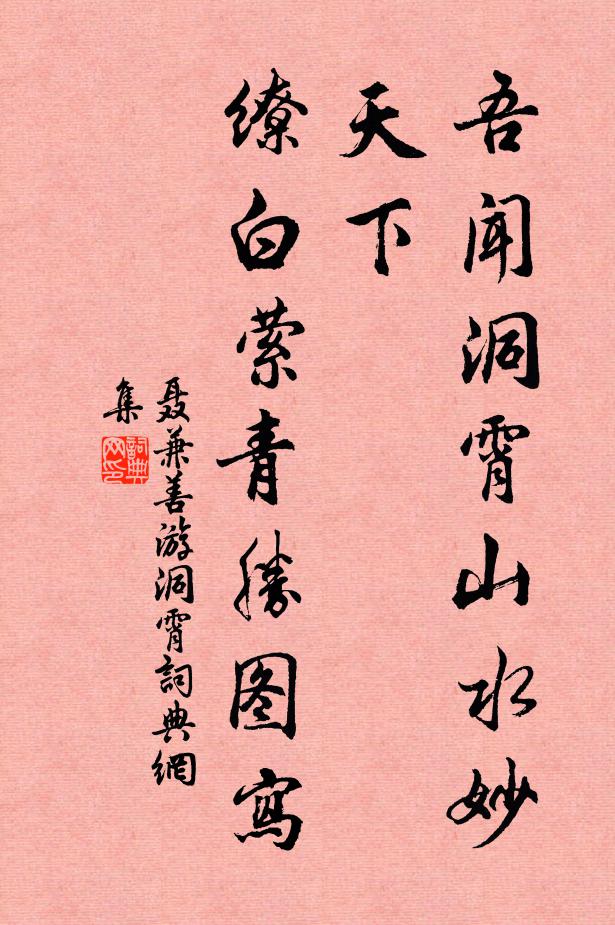 吾闻洞霄山水妙
天下
缭白萦青胜图寫
聂兼善游洞霄詞典網
集
詞典网印